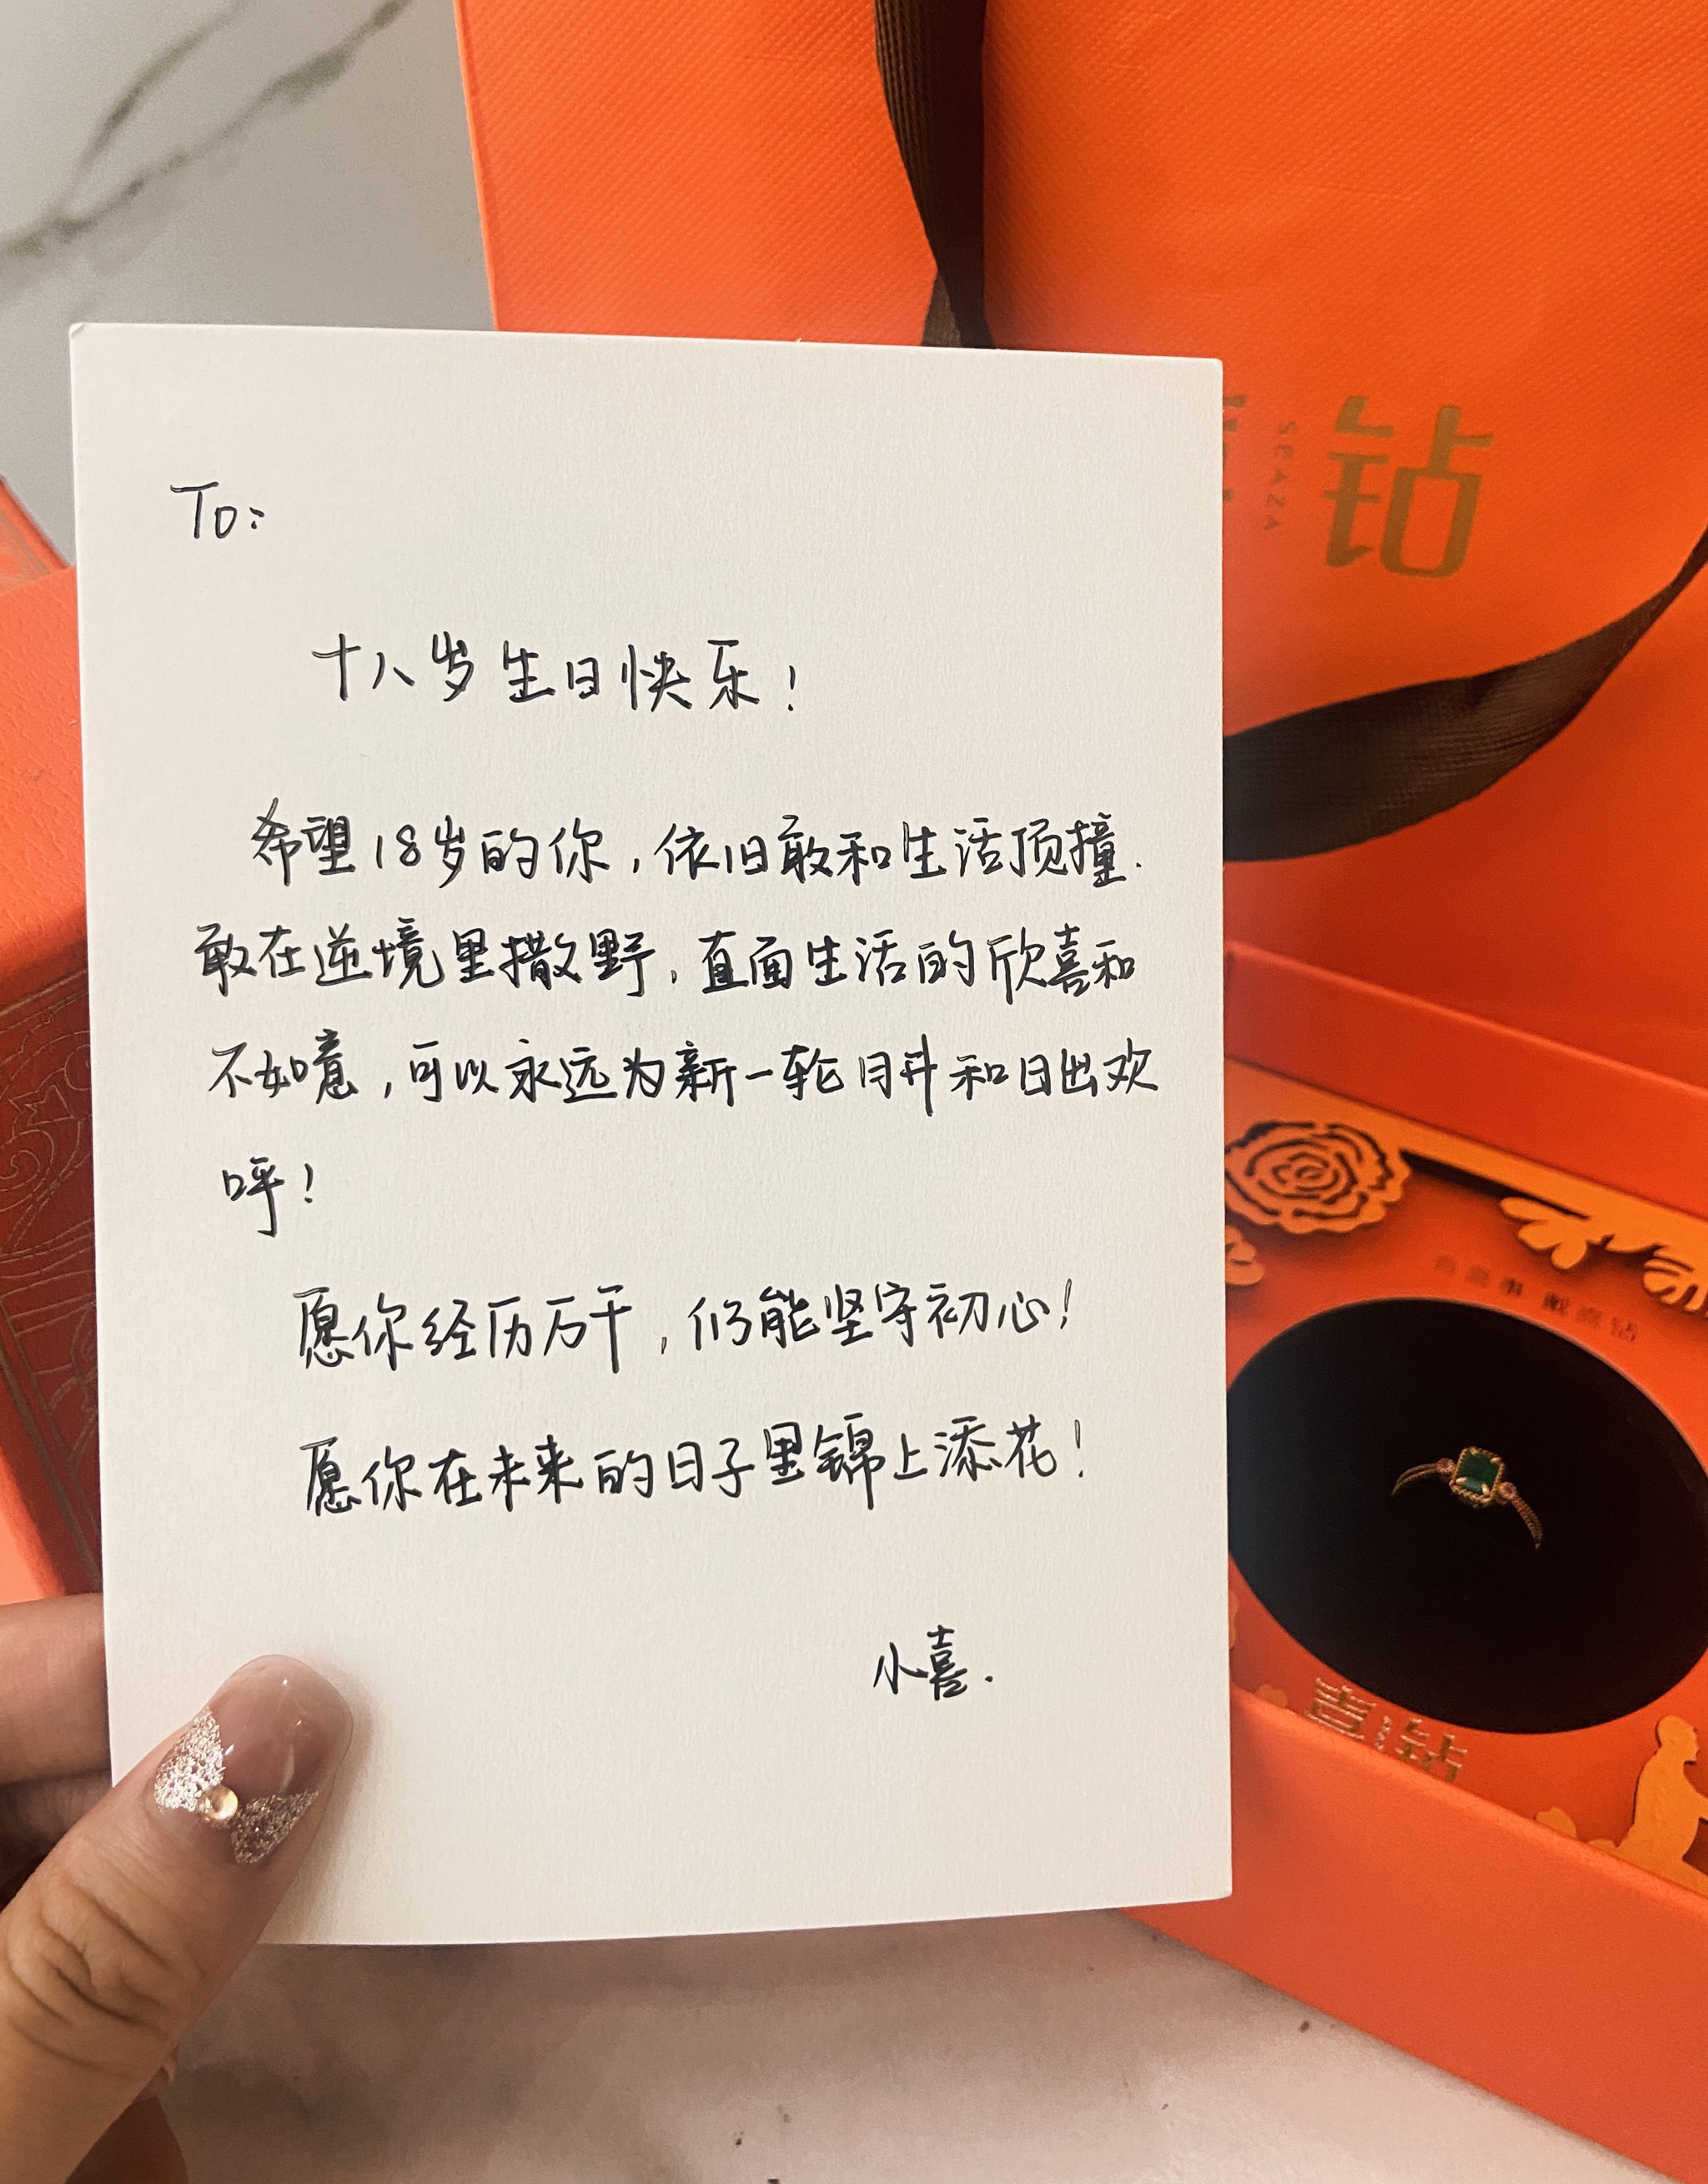 To:
十八岁生日快乐!
希望18岁的你,依旧敢和生活顶撞.
敢在逆境里撒野,直面生活的欣喜和
不如意,可以永远为新一轮月升和日出欢
呼!
愿你经历万千,仍能坚守初心!
愿你在未来的日子里锦上添花!
小喜.
SEAZA
钻
有喜事 戴喜钻
喜钻